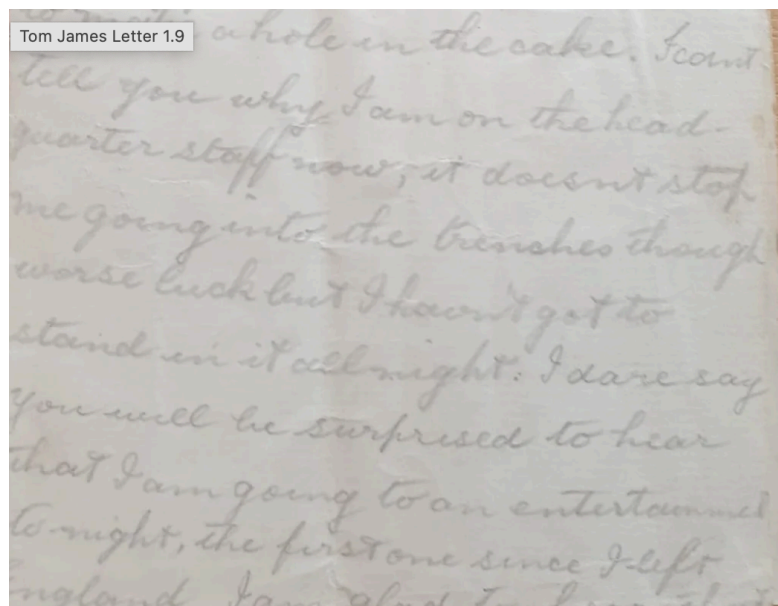 Tom James Letter 1.9
a hole in the cake. I cant
tell you why I am on the head-
quarter staff now, it doesnt stop
me going into the trenches though
worse luck but I havn't got to
stand in it all night. I dare say
you will be surprised to hear
that I am going to an entertainment
to-night, the first one since I left
England. I am glad to